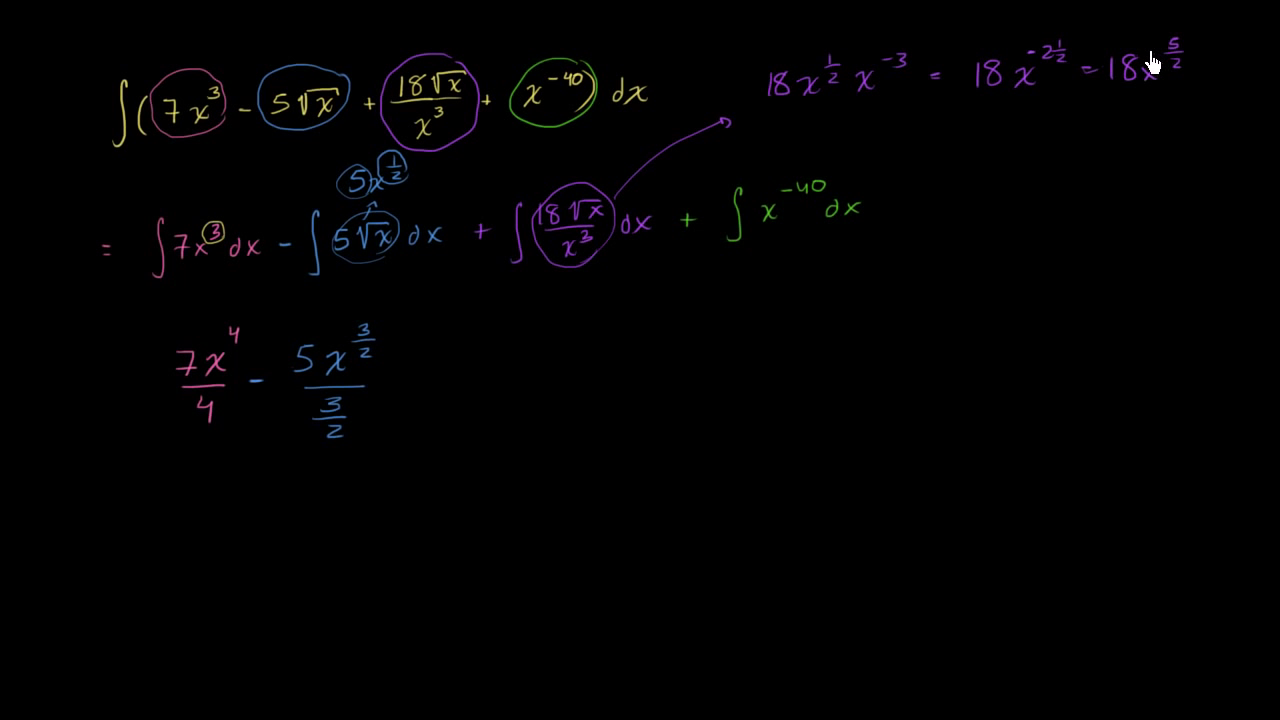 ∫(7x³ - 5√x + 18√x/x³ + x⁻⁴⁰) dx
18 x^(1/2) x⁻³ = 18 x^(-2 1/2) = 18x^(5/2)
5x^(1/2)
= ∫7x³dx - ∫5√x dx + ∫18√x/x³ dx + ∫x⁻⁴⁰dx
7x⁴/4 - 5x^(3/2)/(3/2)